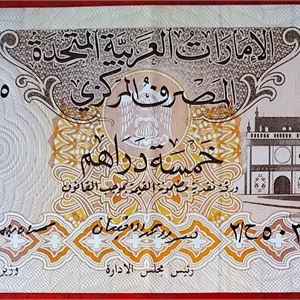 الإمارات العربية المتحدة
المصرف المركزي
٥
خمسة دراهم
ورقة نقدية مضمونة القيمة بموجب القانون
رئيس مجلس الادارة
وزير